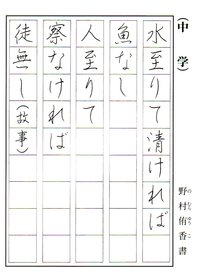 （中学）
水至りて清ければ
魚なし
人至りて
察なければ
徒無し（故事）
野村侑香書
のむらゆうこ